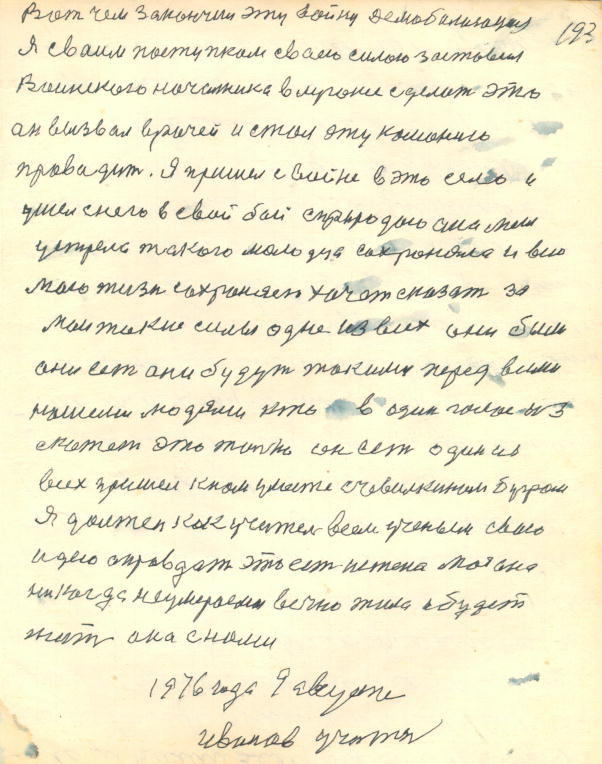 193
Вот чем закончил эту войну Демобализация
Я своим поступком своею силою заставил
Воинского начальника в луганске сделат это
ан вызвал врачей и стал эту комонию
провадит. Я пришел с войне в это село и
ушел с него в свой бой с природою она меня
такого молодца сохроняла и всю
мою жизн сохроняет хочат сказат за
мои такие силы одне из всех они были
они ест они будут такими перед всеми
нашими людями кто в один голос
скажет это точно он ест один из
всех пришел к ном с чевилкиным бугром
Я должен как учител всем ученым свою
идею оправдат это ест истена моя она
никогда неумераемая вечно жила и будет
жит она с номи
1976 года 9 августа
Иванов учител